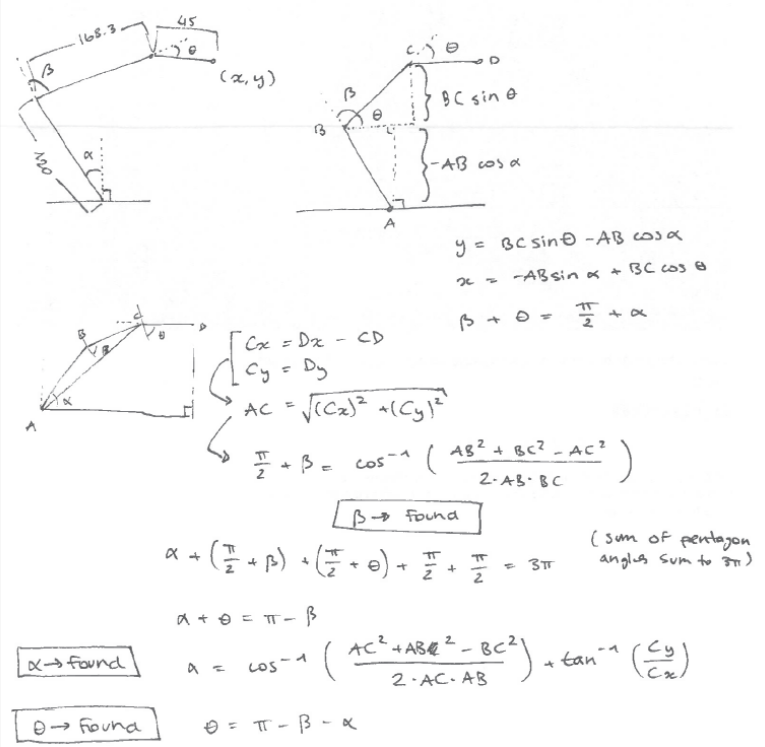 168.3
45
β
θ
(x,y)
α
C
θ
D
β
B
θ
BC sin θ
-AB cos α
A
y = BC sin θ - AB cos α
x = -AB sin α + BC cos θ
β + θ = π/2 + α
B
C
D
β
θ
α
A
Cx = Dx - CD
Cy = Dy
AC = √((Cx)² + (Cy)²)
π/2 + β = cos⁻¹ ( (AB² + BC² - AC²) / (2·AB·BC) )
β → Found
α + (π/2 + β) + (π/2 + θ) + π/2 + π/2 = 3π
(sum of pentagon
angles sum to 3π)
α + θ = π - β
α → Found
α = cos⁻¹ ( (AC² + AB² - BC²) / (2·AC·AB) ) + tan⁻¹ (Cy/Cx)
θ → Found
θ = π - β - α